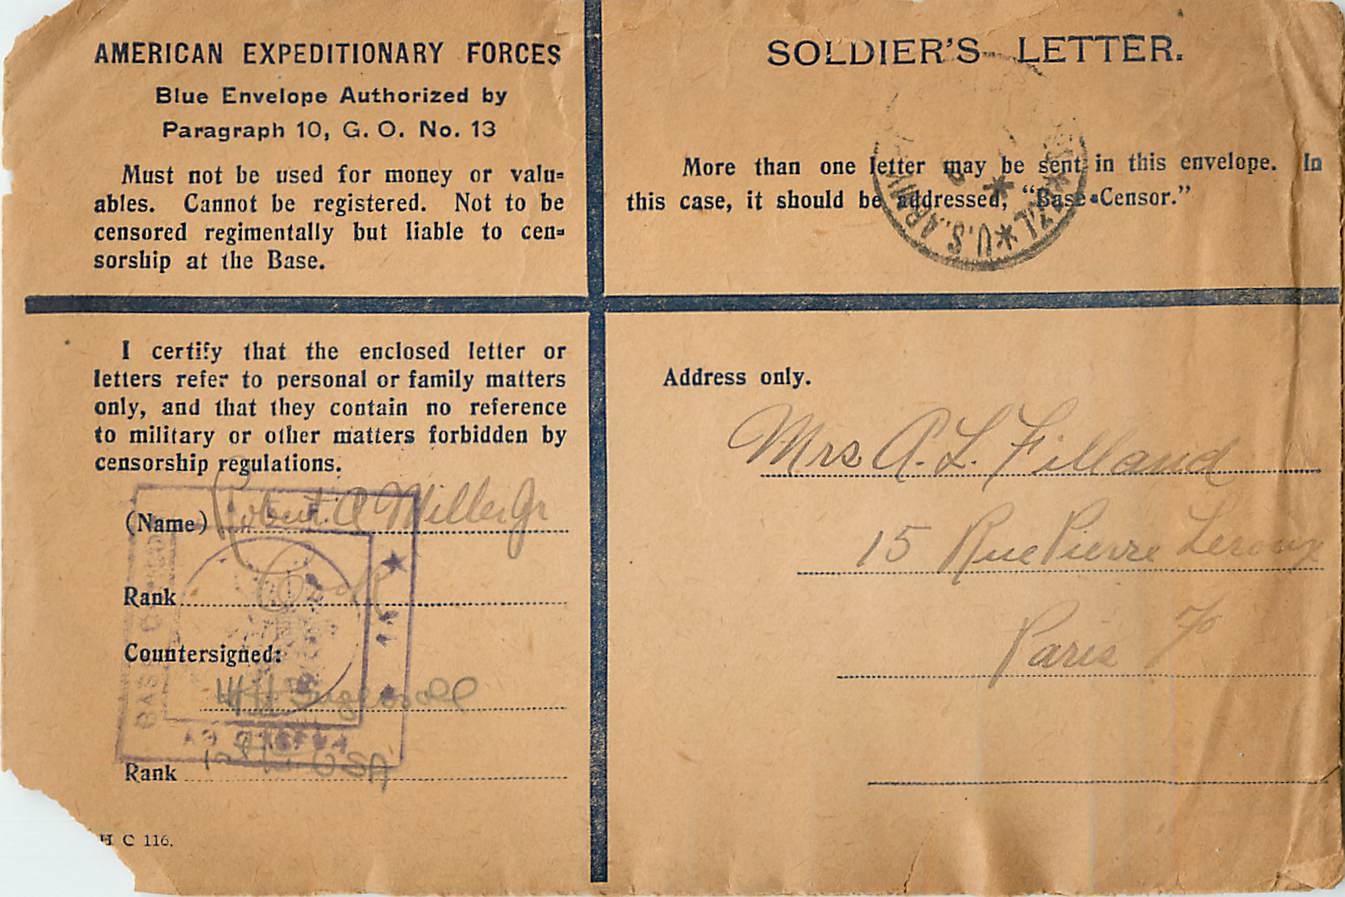 AMERICAN EXPEDITIONARY FORCES
Blue Envelope Authorized by
Paragraph 10, G. O. No. 13
Must not be used for money or valu=
ables. Cannot be registered. Not to be
censored regimentally but liable to cen=
sorship at the Base.
SOLDIER'S LETTER.
More than one letter may be sent in this envelope. In
this case, it should be addressed, "Base Censor."
U.S. ARMY
I certify that the enclosed letter or
letters refer to personal or family matters
only, and that they contain no reference
to military or other matters forbidden by
censorship regulations.
(Name) Robert A Miller Jr
Rank Cook
Countersigned:
Rank 1st Lt USA
H C 116.
Address only.
Mrs A. L. Filland
15 Rue Pierre Leroux
Paris